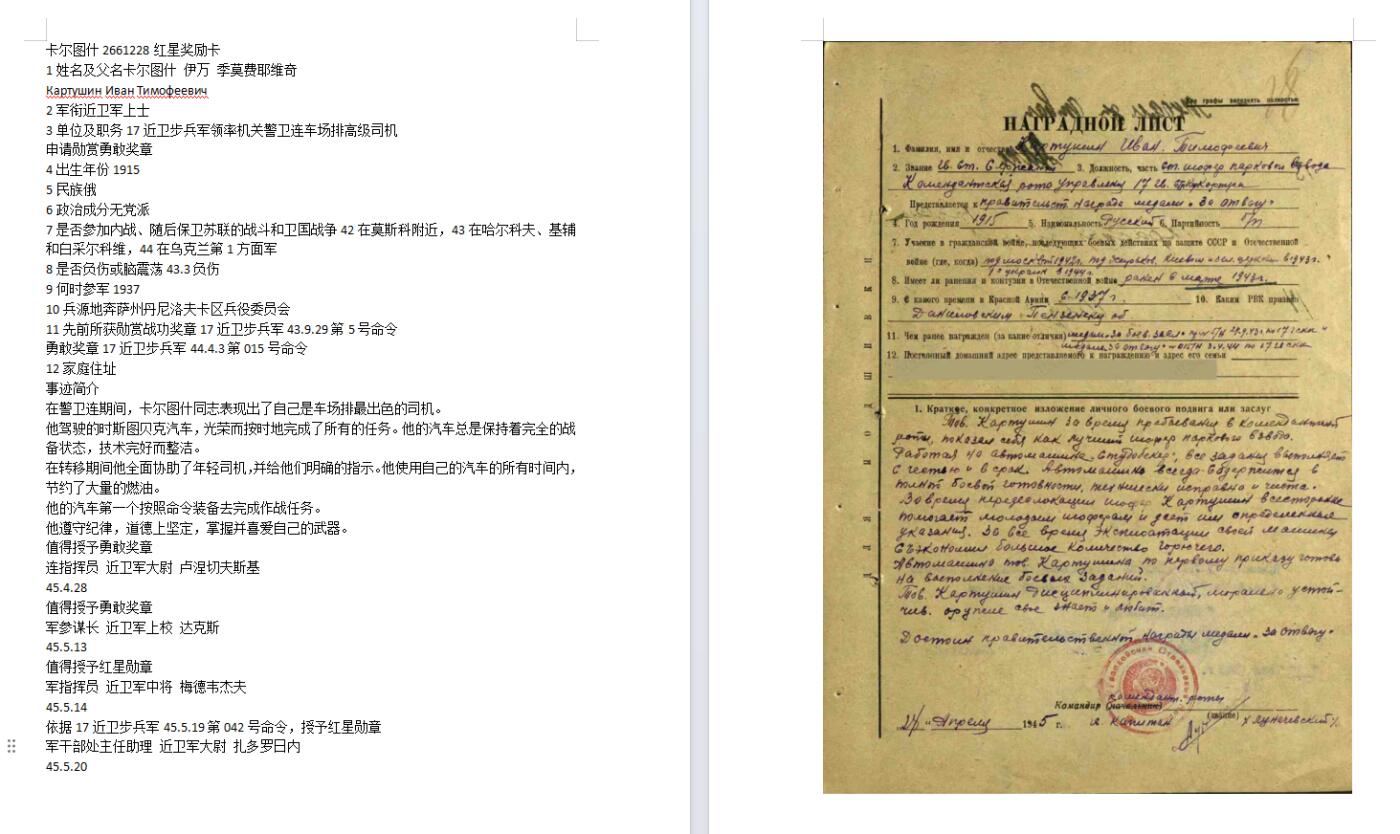 卡尔图什 2661228 红星奖励卡
1 姓名及父名卡尔图什 伊万 季莫费耶维奇
Картушин Иван Тимофеевич
2 军衔近卫军上士
3 单位及职务 17 近卫步兵军领率机关警卫连车场排高级司机
申请勋赏勇敢奖章
4 出生年份 1915
5 民族俄
6 政治成分无党派
7 是否参加内战、随后保卫苏联的战斗和卫国战争 42 在莫斯科附近，43 在哈尔科夫、基辅
和白采尔科维，44 在乌克兰第 1 方面军
8 是否负伤或脑震荡 43.3 负伤
9 何时参军 1937
10 兵源地奔萨州丹尼洛夫卡区兵役委员会
11 先前所获勋赏战功奖章 17 近卫步兵军 43.9.29 第 5 号命令
勇敢奖章 17 近卫步兵军 44.4.3 第 015 号命令
12 家庭住址
事迹简介
在警卫连期间，卡尔图什同志表现出了自己是车场排最出色的司机。
他驾驶的时斯图贝克汽车，光荣而按时地完成了所有的任务。他的汽车总是保持着完全的战
备状态，技术完好而整洁。
在转移期间他全面协助了年轻司机,并给他们明确的指示。他使用自己的汽车的所有时间内，
节约了大量的燃油。
他的汽车第一个按照命令装备去完成作战任务。
他遵守纪律，道德上坚定，掌握并喜爱自己的武器。
值得授予勇敢奖章
连指挥员 近卫军大尉 卢涅切夫斯基
45.4.28
值得授予勇敢奖章
军参谋长 近卫军上校 达克斯
45.5.13
值得授予红星勋章
军指挥员 近卫军中将 梅德韦杰夫
45.5.14
依据 17 近卫步兵军 45.5.19 第 042 号命令，授予红星勋章
军干部处主任助理 近卫军大尉 扎多罗日内
45.5.20
все графы заполнять полностью
НАГРАДНОЙ ЛИСТ
1. Фамилия, имя и отчество Картушин Иван Тимофеевич
2. Звание Гв. ст. Сержант 3. Должность, часть ст. шофер паркового взвода
Комендантской роты управления 17 гв. стр. корпуса
Представляется к правительст награде медали "За отвагу"
4. Год рождения 1915 5. Национальность Русский 6. Партийность б/п
7. Участие в гражданской войне, последующих боевых действиях по защите СССР и Отечественной
войне (где, когда) под москвой 1942г. под Харьков, Киевом в 1943г.
1 украин в 1944г.
8. Имеет ли ранения и контузии в Отечественной войне ранен в марте 1943г.
9. С какого времени в Красной Армии с 1937г. 10. Каким РВК призван
Даниловским Пензенской об
11. Чем ранее награжден (за какие отличия) медаль "За боев. засл."
медаль "За отвагу"
12. Постоянный домашний адрес представляемого к награждению и адрес его семьи
1. Краткое, конкретное изложение личного боевого подвига или заслуг
Тов. Картушин за время пребывания в комендантской
роты, показал себя как лучший шофер паркового взвода.
Работая на автомашине "Студобекер", все задания выполняет
с честью и в срок. Автомашина всегда содержится в
полной боевой готовности, технически исправна и чиста.
Во время передислокации шофер Картушин всесторонне
помогает молодым шоферам и дает им определенные
указания. За все время эксплоатации своей машины
сэкономил большое количество горючего.
Автомашина тов. Картушина по первому приказу готова
на выполнение боевых заданий.
Тов. Картушин дисциплинированный, морально устой-
чив. оружие свое знает и любит.
Достоин правительственной награды медали "За отвагу"
комендант. роты
Командир (начальник)
(звание)
Апреля 1945 г. гв. капитан